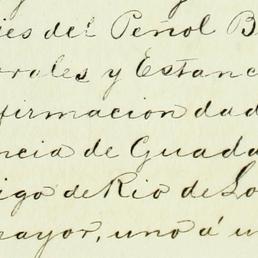 ies del Peñol B
orales y Estanc
firmacion dad
ncia de Guada
igo de Rio de Lo
mayor, uno á u